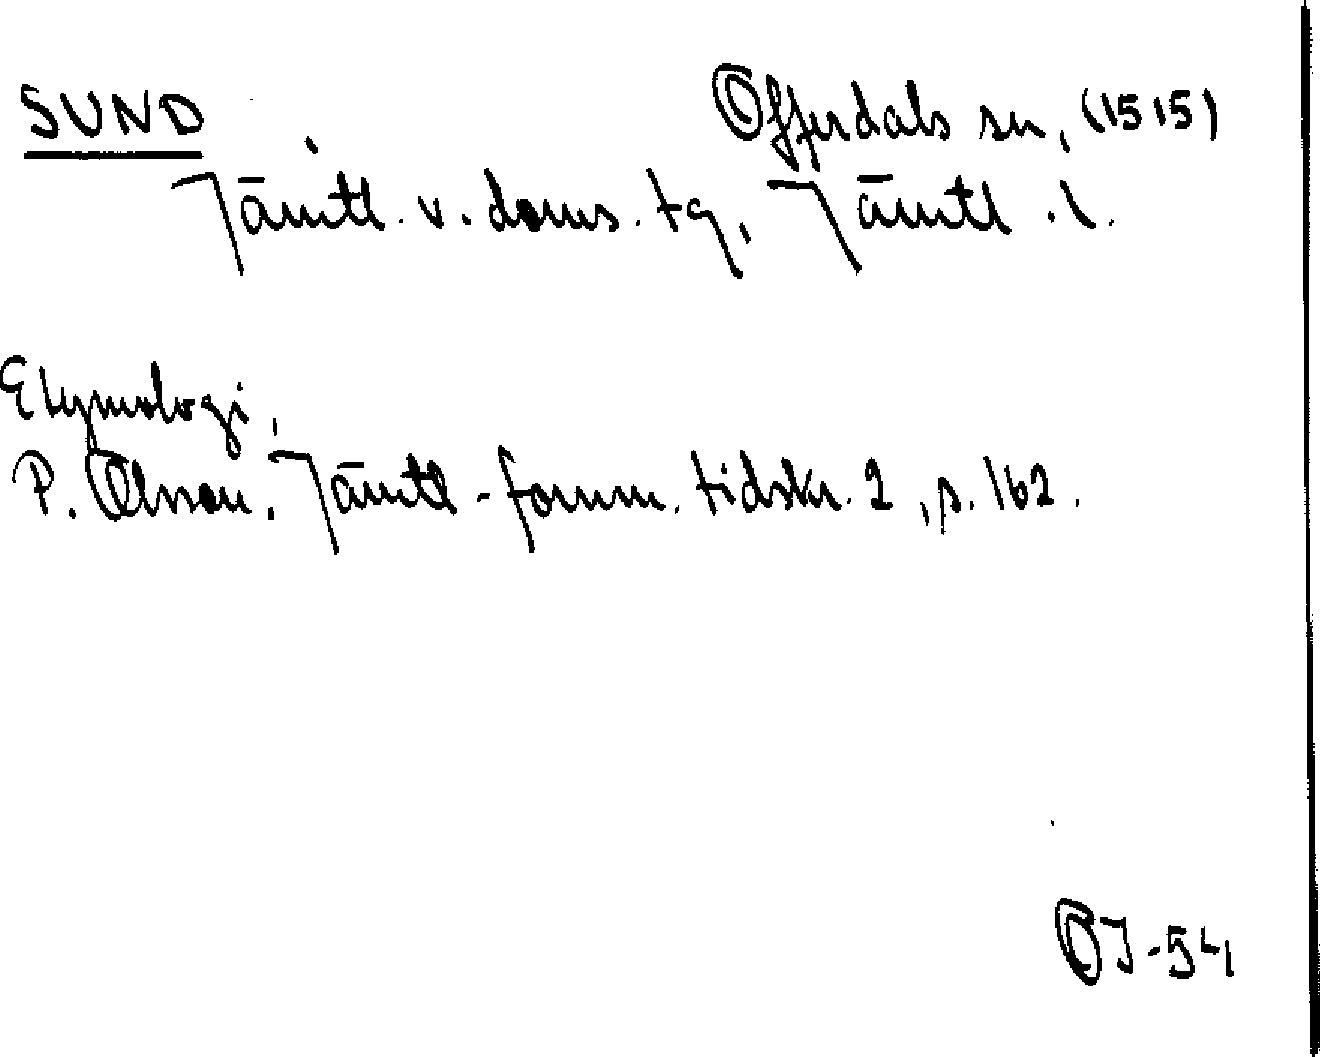 SUND Offerdals sn, (1515)
Jämtl. v. doms. tg, Jämtl. l.
Etymologi,
P. Olsson. Jämtl-fornm. tidskr. 2, s. 162.
OJ-54